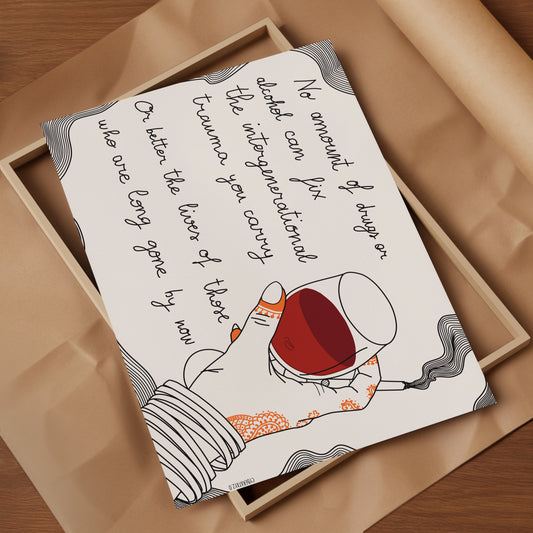 No amount of drugs or
alcohol can fix
the intergenerational
trauma you carry
Or better the lives of those
who are long gone by now